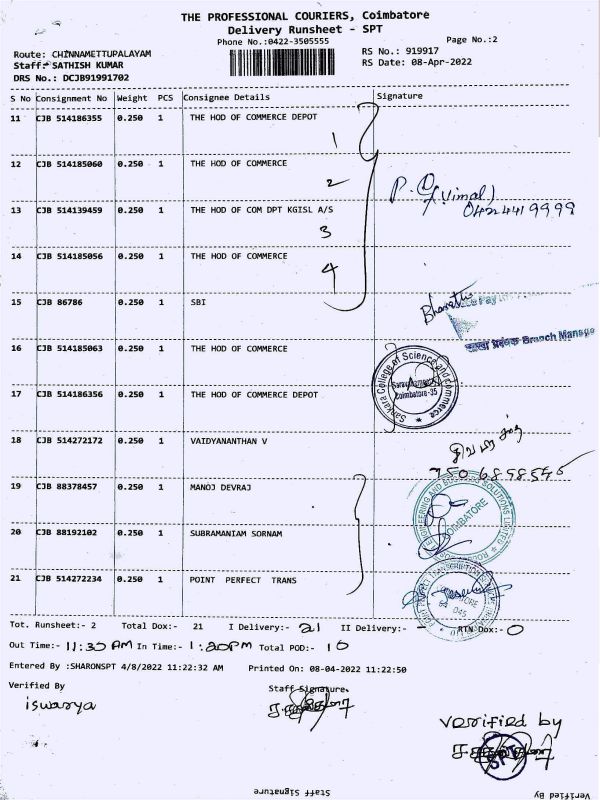 THE PROFESSIONAL COURIERS, Coimbatore
Delivery Runsheet - SPT
Phone No.:0422-3505555
Page No.:2
Route: CHINNAMETTUPALAYAM
RS No.: 919917
Staff:- SATHISH KUMAR
RS Date: 08-Apr-2022
DRS No.: DCJB91991702
S No Consignment No Weight PCS Consignee Details Signature
11 CJB 514186355 0.250 1 THE HOD OF COMMERCE DEPOT
1
12 CJB 514185060 0.250 1 THE HOD OF COMMERCE
2
P. (Vimal)
0422 441 9999
13 CJB 514139459 0.250 1 THE HOD OF COM DPT KGISL A/S
3
14 CJB 514185056 0.250 1 THE HOD OF COMMERCE
4
15 CJB 86786 0.250 1 SBI
Bharathi
Branch Manage
16 CJB 514185063 0.250 1 THE HOD OF COMMERCE
Sankara College of Science and Commerce
Saravanampatti
Coimbatore-35
17 CJB 514186356 0.250 1 THE HOD OF COMMERCE DEPOT
18 CJB 514272172 0.250 1 VAIDYANANTHAN V
19 CJB 88378457 0.250 1 MANOJ DEVRAJ
ENGINEERING AND BUSINESS SOLUTIONS LIMITED
COIMBATORE
20 CJB 88192102 0.250 1 SUBRAMANIAM SORNAM
21 CJB 514272234 0.250 1 POINT PERFECT TRANS
Tot. Runsheet:- 2 Total Dox:- 21 I Delivery:- 21 II Delivery:- - RTN Dox:- 0
Out Time:- 11:35 AM In Time:- 1:20PM Total POD:- 10
Entered By :SHARONSPT 4/8/2022 11:22:32 AM Printed On: 08-04-2022 11:22:50
Verified By
Staff Signature.
iswarya
verified by
SPT
Staff Signature
Verified By